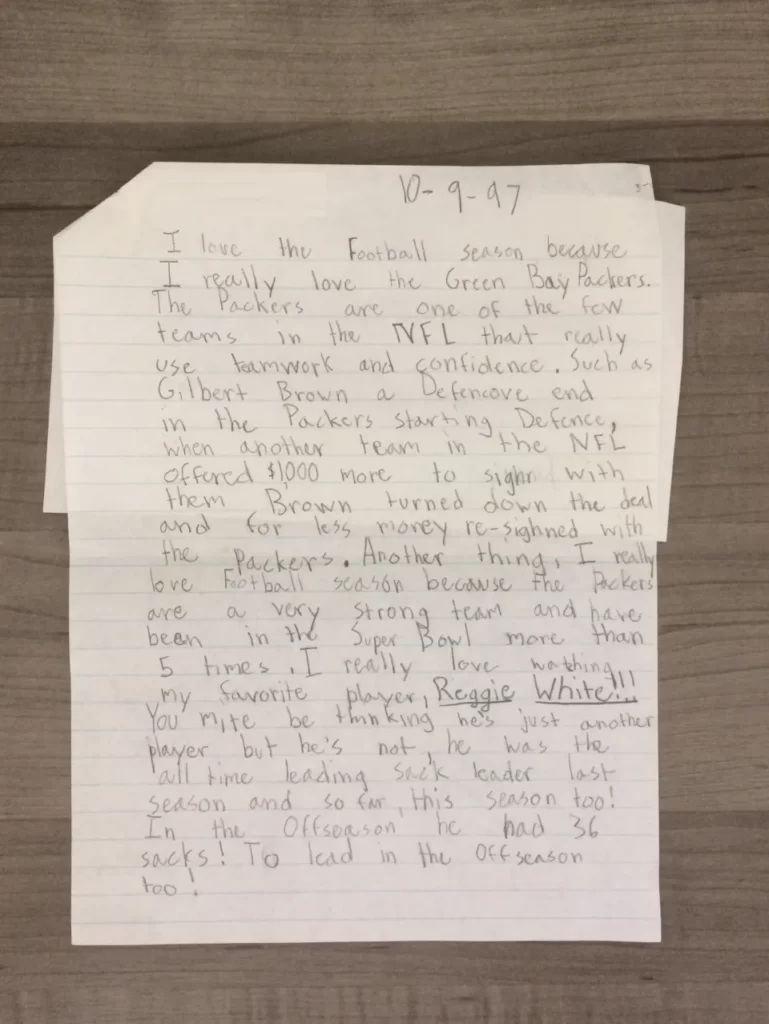 10-9-97
I love the Football season because
I really love the Green Bay Packers.
The Packers are one of the few
teams in the NFL that really
use teamwork and confidence. Such as
Gilbert Brown a Defencove end
in the Packers starting Defence,
when another team in the NFL
offered $1,000 more to sighn with
them Brown turned down the deal
and for less money re-sighned with
the Packers. Another thing, I really
love Football season because the Packers
are a very strong team and have
been in the Super Bowl more than
5 times. I really love watching
my favorite player, Reggie White!!!
You mite be thinking he's just another
player but he's not, he was the
all time leading sack leader last
season and so far, this season too!
In the Offseason he had 36
sacks! To lead in the Offseason
too!